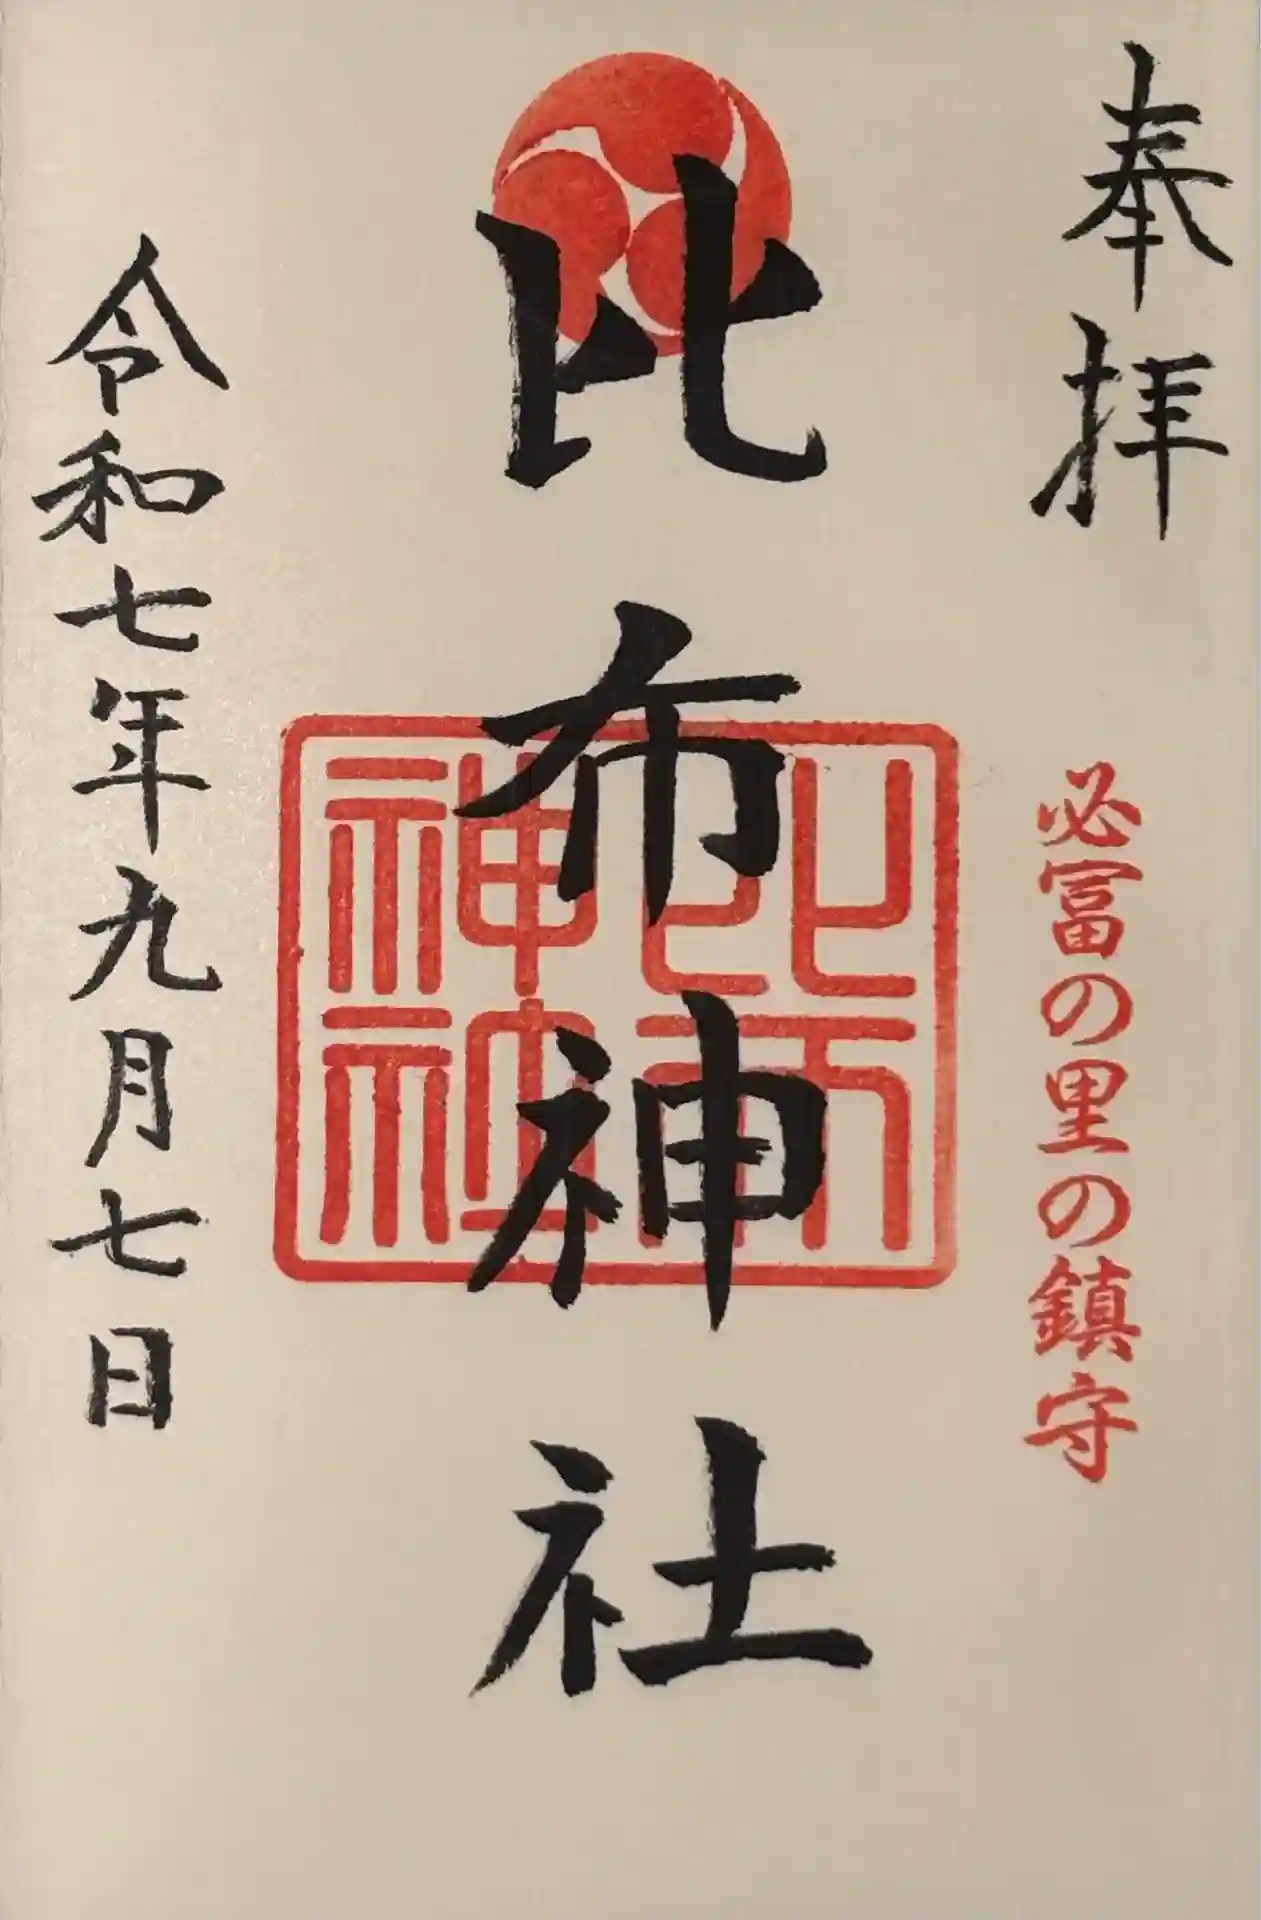 奉拝
必富の里の鎮守
比布神社
比布神社
令和七年九月七日